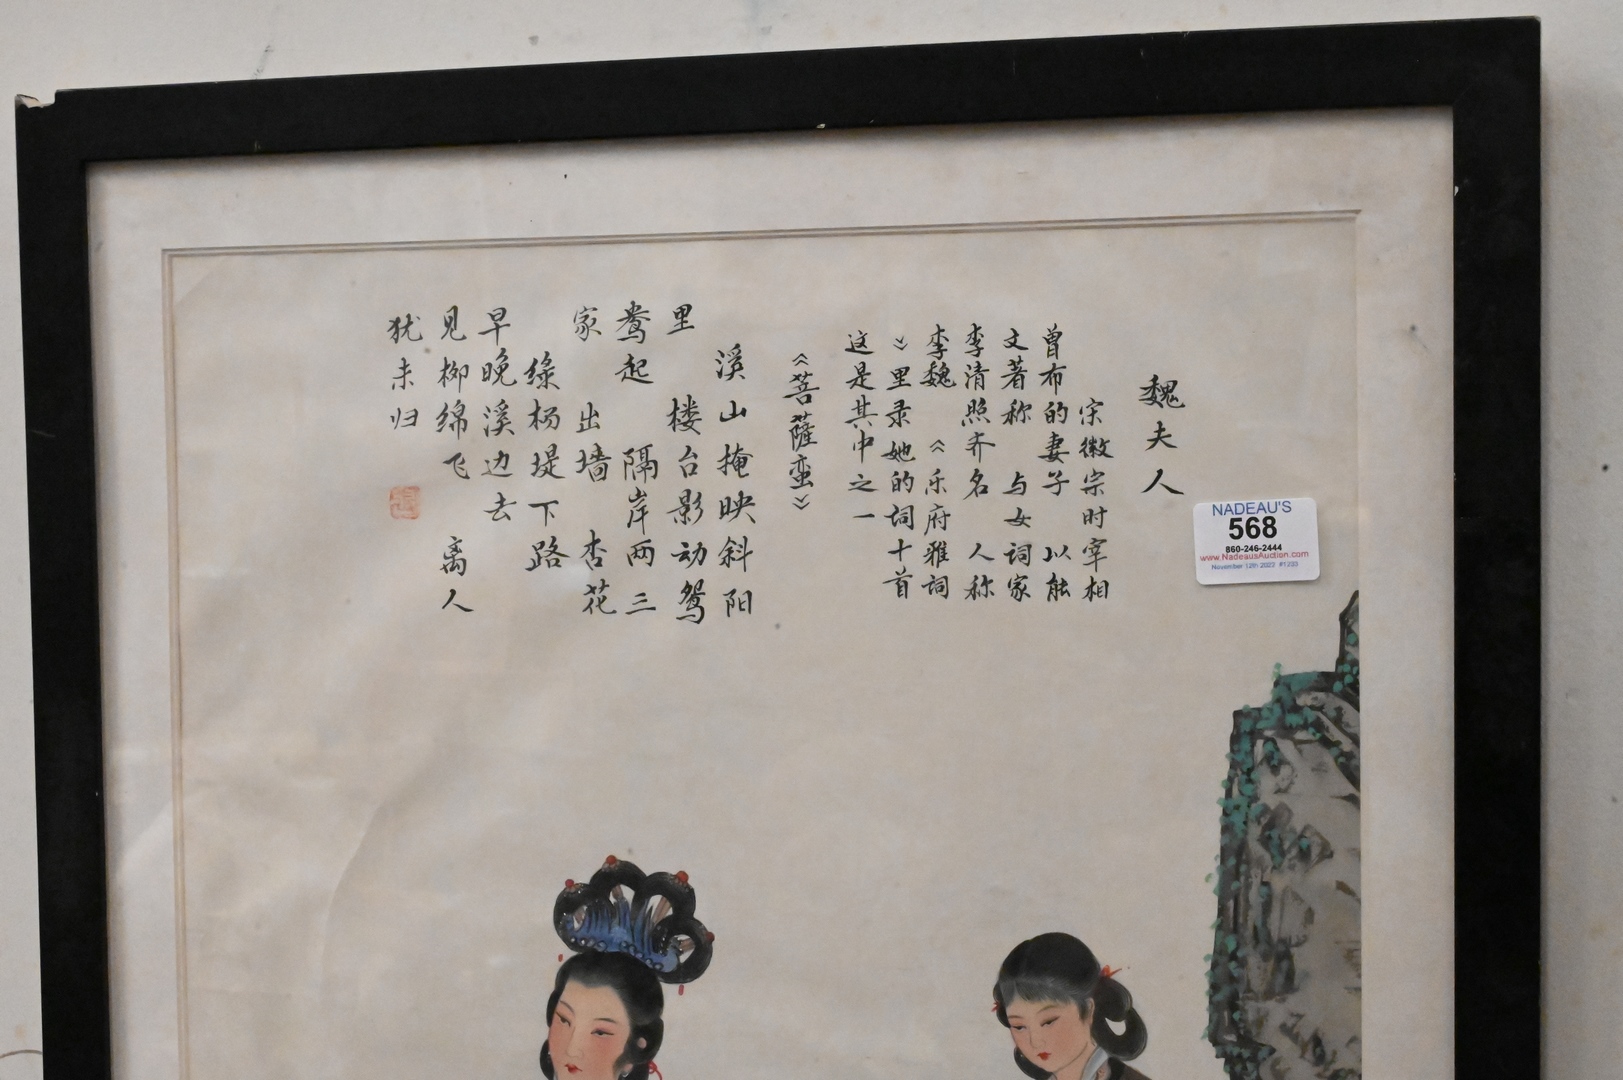 魏夫人
宋徽宗时宰相
曾布的妻子 以能
文著称 与女词家
李清照齐名 人称
李魏 《乐府雅词
》里录她的词十首
这是其中之一
《菩薩蛮》
溪山掩映斜阳
里 楼台影动鸳
鸯起 隔岸两三
家 出墙杏花
绿杨堤下路
早晚溪边去
见柳绵飞 离人
犹未归
NADEAU'S
568
860-246-2444
www.NadeausAuction.com
November 12th 2022 #1233